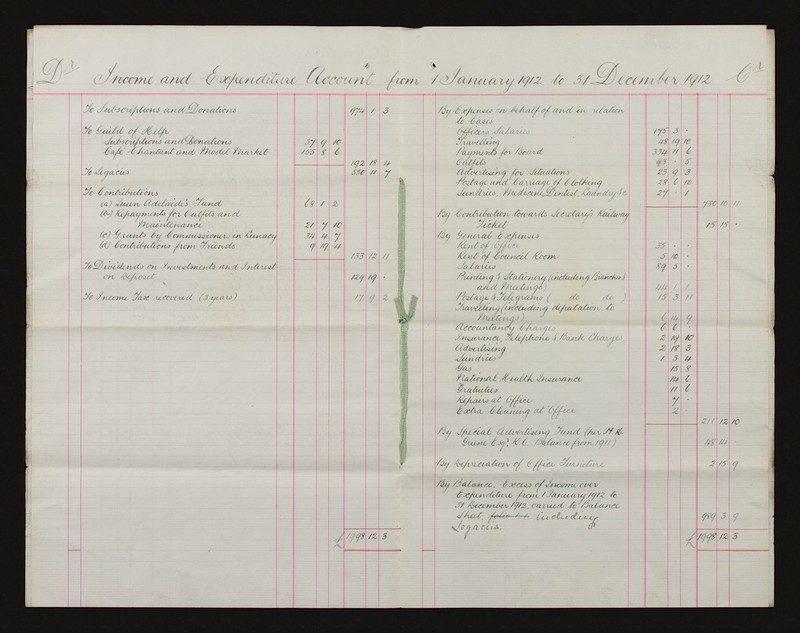 Dr Income and Expenditure Account from 1 January 1912 to 31 December 1912 Cr
To Subscriptions and Donations 974 1 3
To Guild of Help
Subscriptions and Donations 37 9 10
Café Chantant and Model Market 155 8 6
192 18 4
To Legacies 550 11 7
To Contributions
(a) Queen Adelaide's Fund 68 1 2
(b) Repayments for Outfits and
Maintenance 21 7 10
(c) Grants by Commissioners in Lunacy 34 4 7
(d) Contributions from Friends 9 19 4
133 12 11
To Dividends on Investments and Interest
on Deposit 129 19 -
To Income Tax recovered (3 years) 17 9 2
£ 1998 12 3
By Expenses on behalf of and in relation
to Cases
Officers Salaries 175 3 -
Travelling 48 19 10
Payments for Board 334 11 6
Outfits 93 - 5
Advertising for Situations 23 9 3
Postage and Carriage of Clothing 28 6 10
Sundries, Medicine, Dentist, Laundry &c 27 - 1
730 10 11
By Contribution towards Secretary's Railway
Ticket 15 15 -
By General Expenses
Rent of Office 35 - -
Rent of Council Room 5 10 -
Salaries 89 5 -
Printing & Stationery (including Branches
and Meetings) 44 1 1
Postage & Telegrams ( do do ) 15 3 11
Travelling (including deputation to
Meetings) 6 14 9
Accountancy Charges 6 6 -
Insurance, Telephone & Bank Charges 2 19 10
Advertising 2 18 3
Sundries 1 3 4
Gas 15 8
National Health Insurance 14 6
Gratuities 11 6
Repairs at Office 7 -
Extra Cleaning at Office 2 -
211 12 10
By Special Advertising Fund (per
Greene Esqr. K.C. Balance from 1911) 48 14
By Depreciation of Office Furniture 2 15 9
By Balance. Excess of Income over
Expenditure from 1 January 1912 to
31 December 1912, carried to Balance
Sheet including
Legacies 989 3 9
£ 1998 12 3